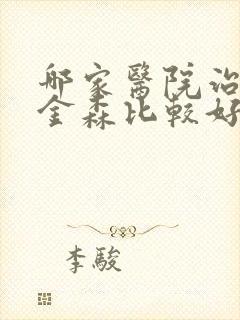 哪家醫院治
金森比較好
李駿